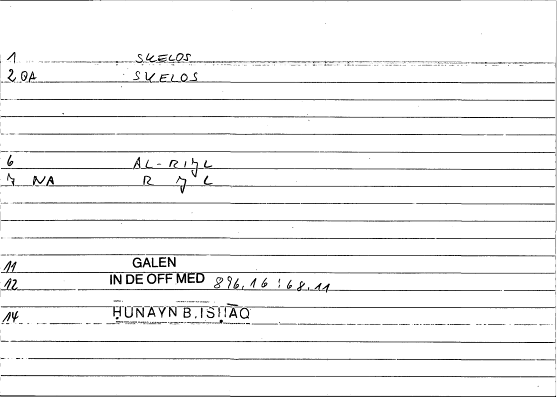 1 SKELOS
2 QA SKELOS
6 AL-RIJL
7 NA R J L
11 GALEN
12 IN DE OFF MED 896,16 : 68,11
14 ḤUNAYN B. ISḤĀQ